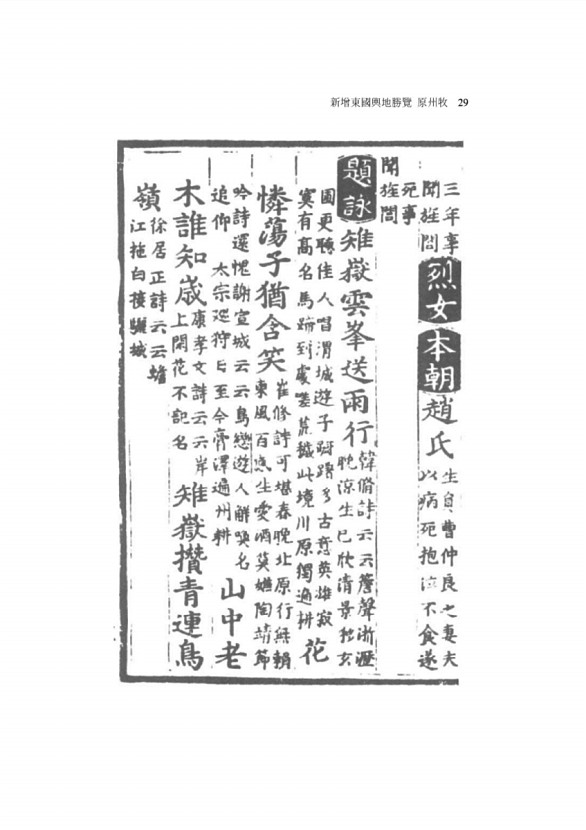 新增東國輿地勝覽 原州牧 29
三年事
聞旌閭
烈女 本朝 趙氏
生員曹仲良之妻夫
以病死抱泣不食遂
死事
聞旌閭
題詠 雉嶽雲峯送雨行
韓脩詩云云簷聲淅瀝
晩涼生已欣清景秋玄
圃更聽佳人唱渭城遊子踟躕多古意英雄寂
寞有高名馬蹄到處荒穢此境川原獨遍耕
花
憐蕩子猶含笑
崔脩詩可堪春晩北原行無賴
東風百感生愛酒莫嫌陶靖節
吟詩還愧謝宣城云云鳥戀遊人解喚名
追仰 太宗巡狩日至今膏澤遍州耕
山中老
木誰知歳
康孝文詩云云岸
上閑花不記名
雉嶽攢青連鳥
嶺
徐居正詩云云蟾
江拖白接驪城